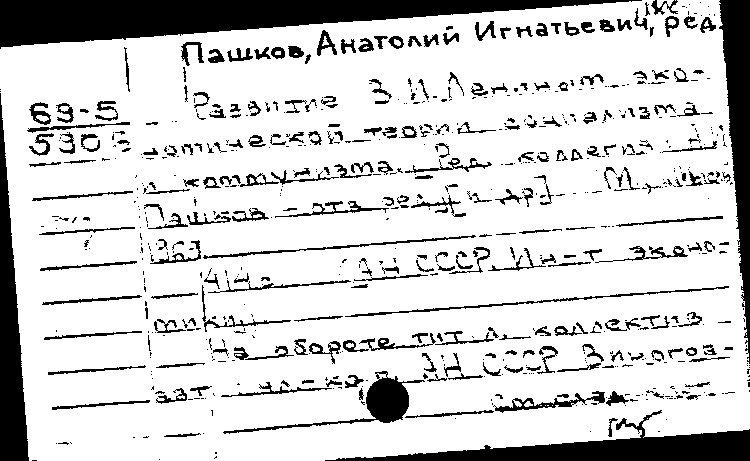 Пашков, Анатолий Игнатьевич, ред.
69-5 Развитие В.И.Лениным эко-
5905 номической теории социализма
и коммунизма. Ред. коллегия: А.И.
Пашков - отв. ред. [и др.] М.,
196
414 с. (АН СССР. Ин-т эконо-
мики)
На обороте тит. л. коллектив
авт. АН СССР
см. след.